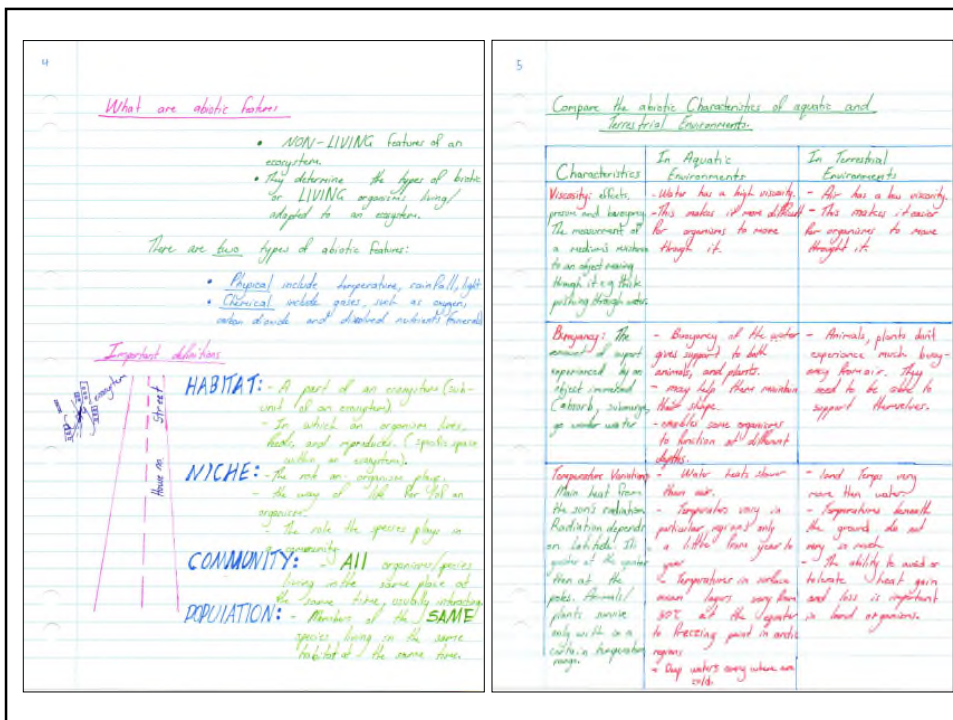 4
What are abiotic features
• NON-LIVING features of an
ecosystem.
• They determine the types of biotic
or LIVING organisms living/
adapted to an ecosystem.
There are two types of abiotic features:
• Physical include temperature, rainfall, light
• Chemical include gases, such as oxygen,
carbon dioxide and dissolved nutrients
Important definitions
ecosystem
Street
House no.
HABITAT: - A part of an ecosystem (sub-
unit of an ecosystem).
- In which an organism lives,
feeds, and reproduces. (specific space
within an ecosystem).
NICHE: - The role an organism plays.
- the way of life for of an
organism.
- The role the species plays in
community
COMMUNITY: - All organisms/species
living in the same place at
the same time, usually interacting
POPULATION: - Members of the SAME
species living in the same
habitat at the same time.
5
Compare the abiotic Characteristics of aquatic and
Terrestrial Environments.
Characteristics
In Aquatic
Environments
In Terrestrial
Environments
Viscosity: effects
and
The measurement of
a medium's
to an object moving
through it e.g thick
pushing through water.
- Water has a high viscosity.
- This makes it more difficult
for organisms to move
though it.
- Air has a low viscosity.
- This makes it easier
for organisms to move
throught it.
Buoyancy: The
amount of support
experienced by an
object immersed
(absorb, submerge,
go under water
- Buoyancy of the water
gives support to both
animals, and plants.
- may help them maintain
their shape.
- enables some organisms
to function at different
depths.
- Animals, plants don't
experience much buoy-
ancy from air. They
need to be able to
support themselves.
Temperature Variation
Main heat from
the son's radiation.
Radiation depends
on latitude. It's
greater at the
than at the
poles. Animals/
plants survive
only with in a
certain temperature
range.
- Water heats slower
than air.
- Temperatures vary in
particular, regions only
a little from year to
year
- Temperatures in surface
ocean layers vary from
at the equator
to freezing point in arctic
regions
- Deep waters every where are
cold.
- land Temps very
more than water
- Temperatures beneath
the ground do not
very so much
- The ability to avoid or
tolerate heat gain
and loss is important
in land organisms.